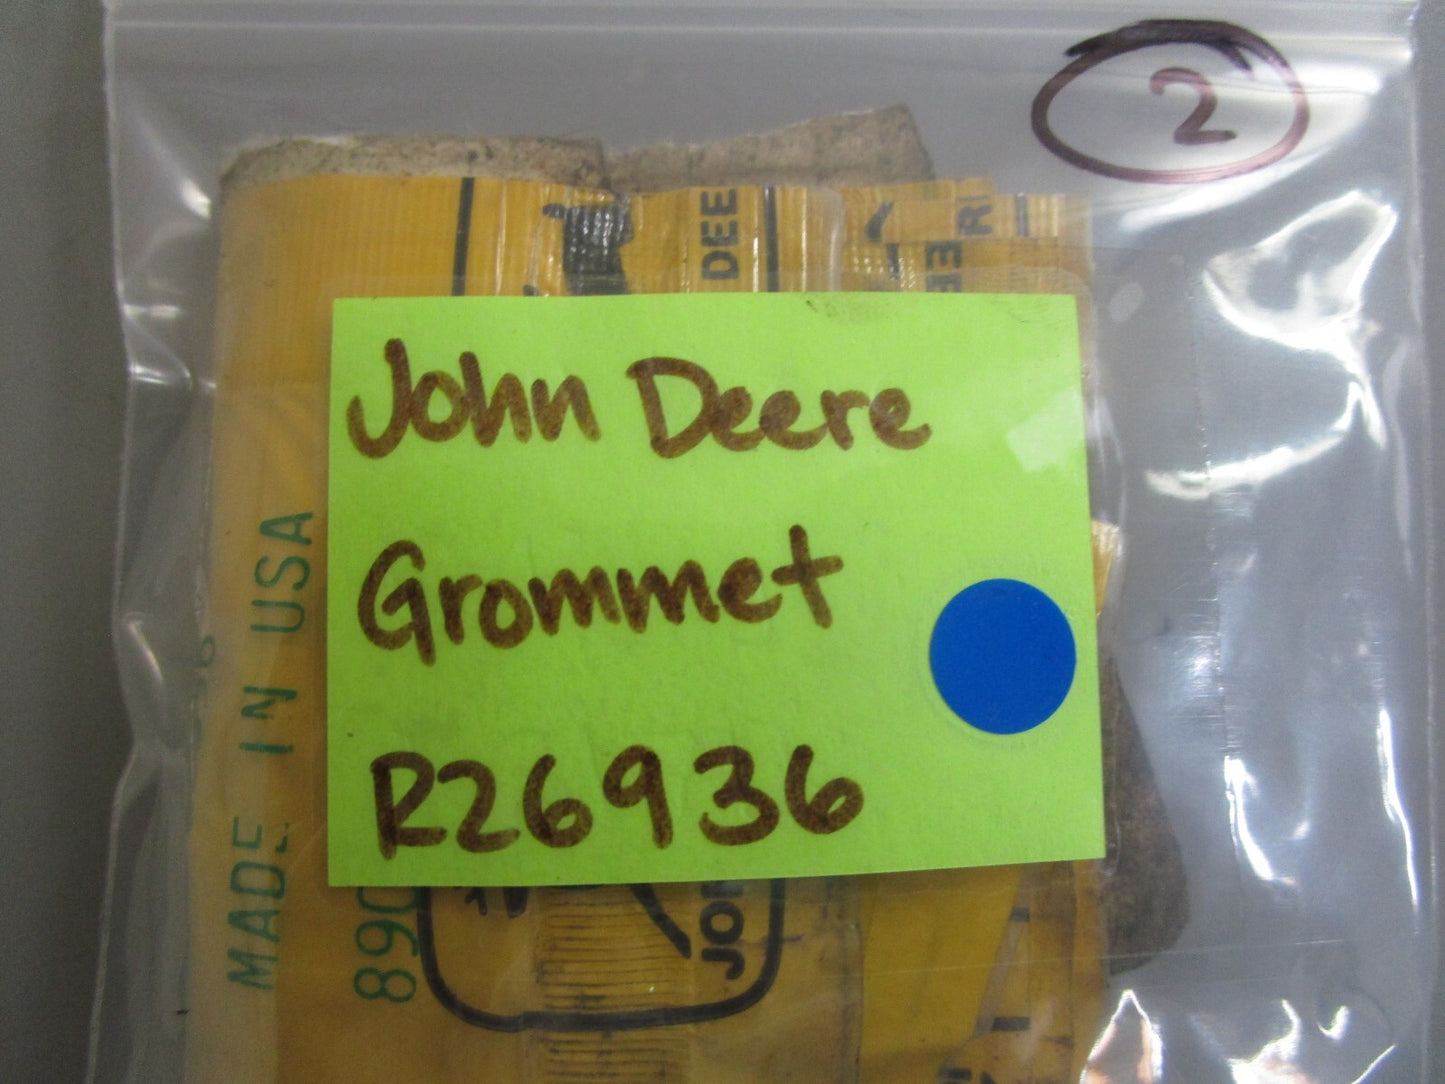 2
DEE
John Deere
Grommet
R26936
MADE IN USA